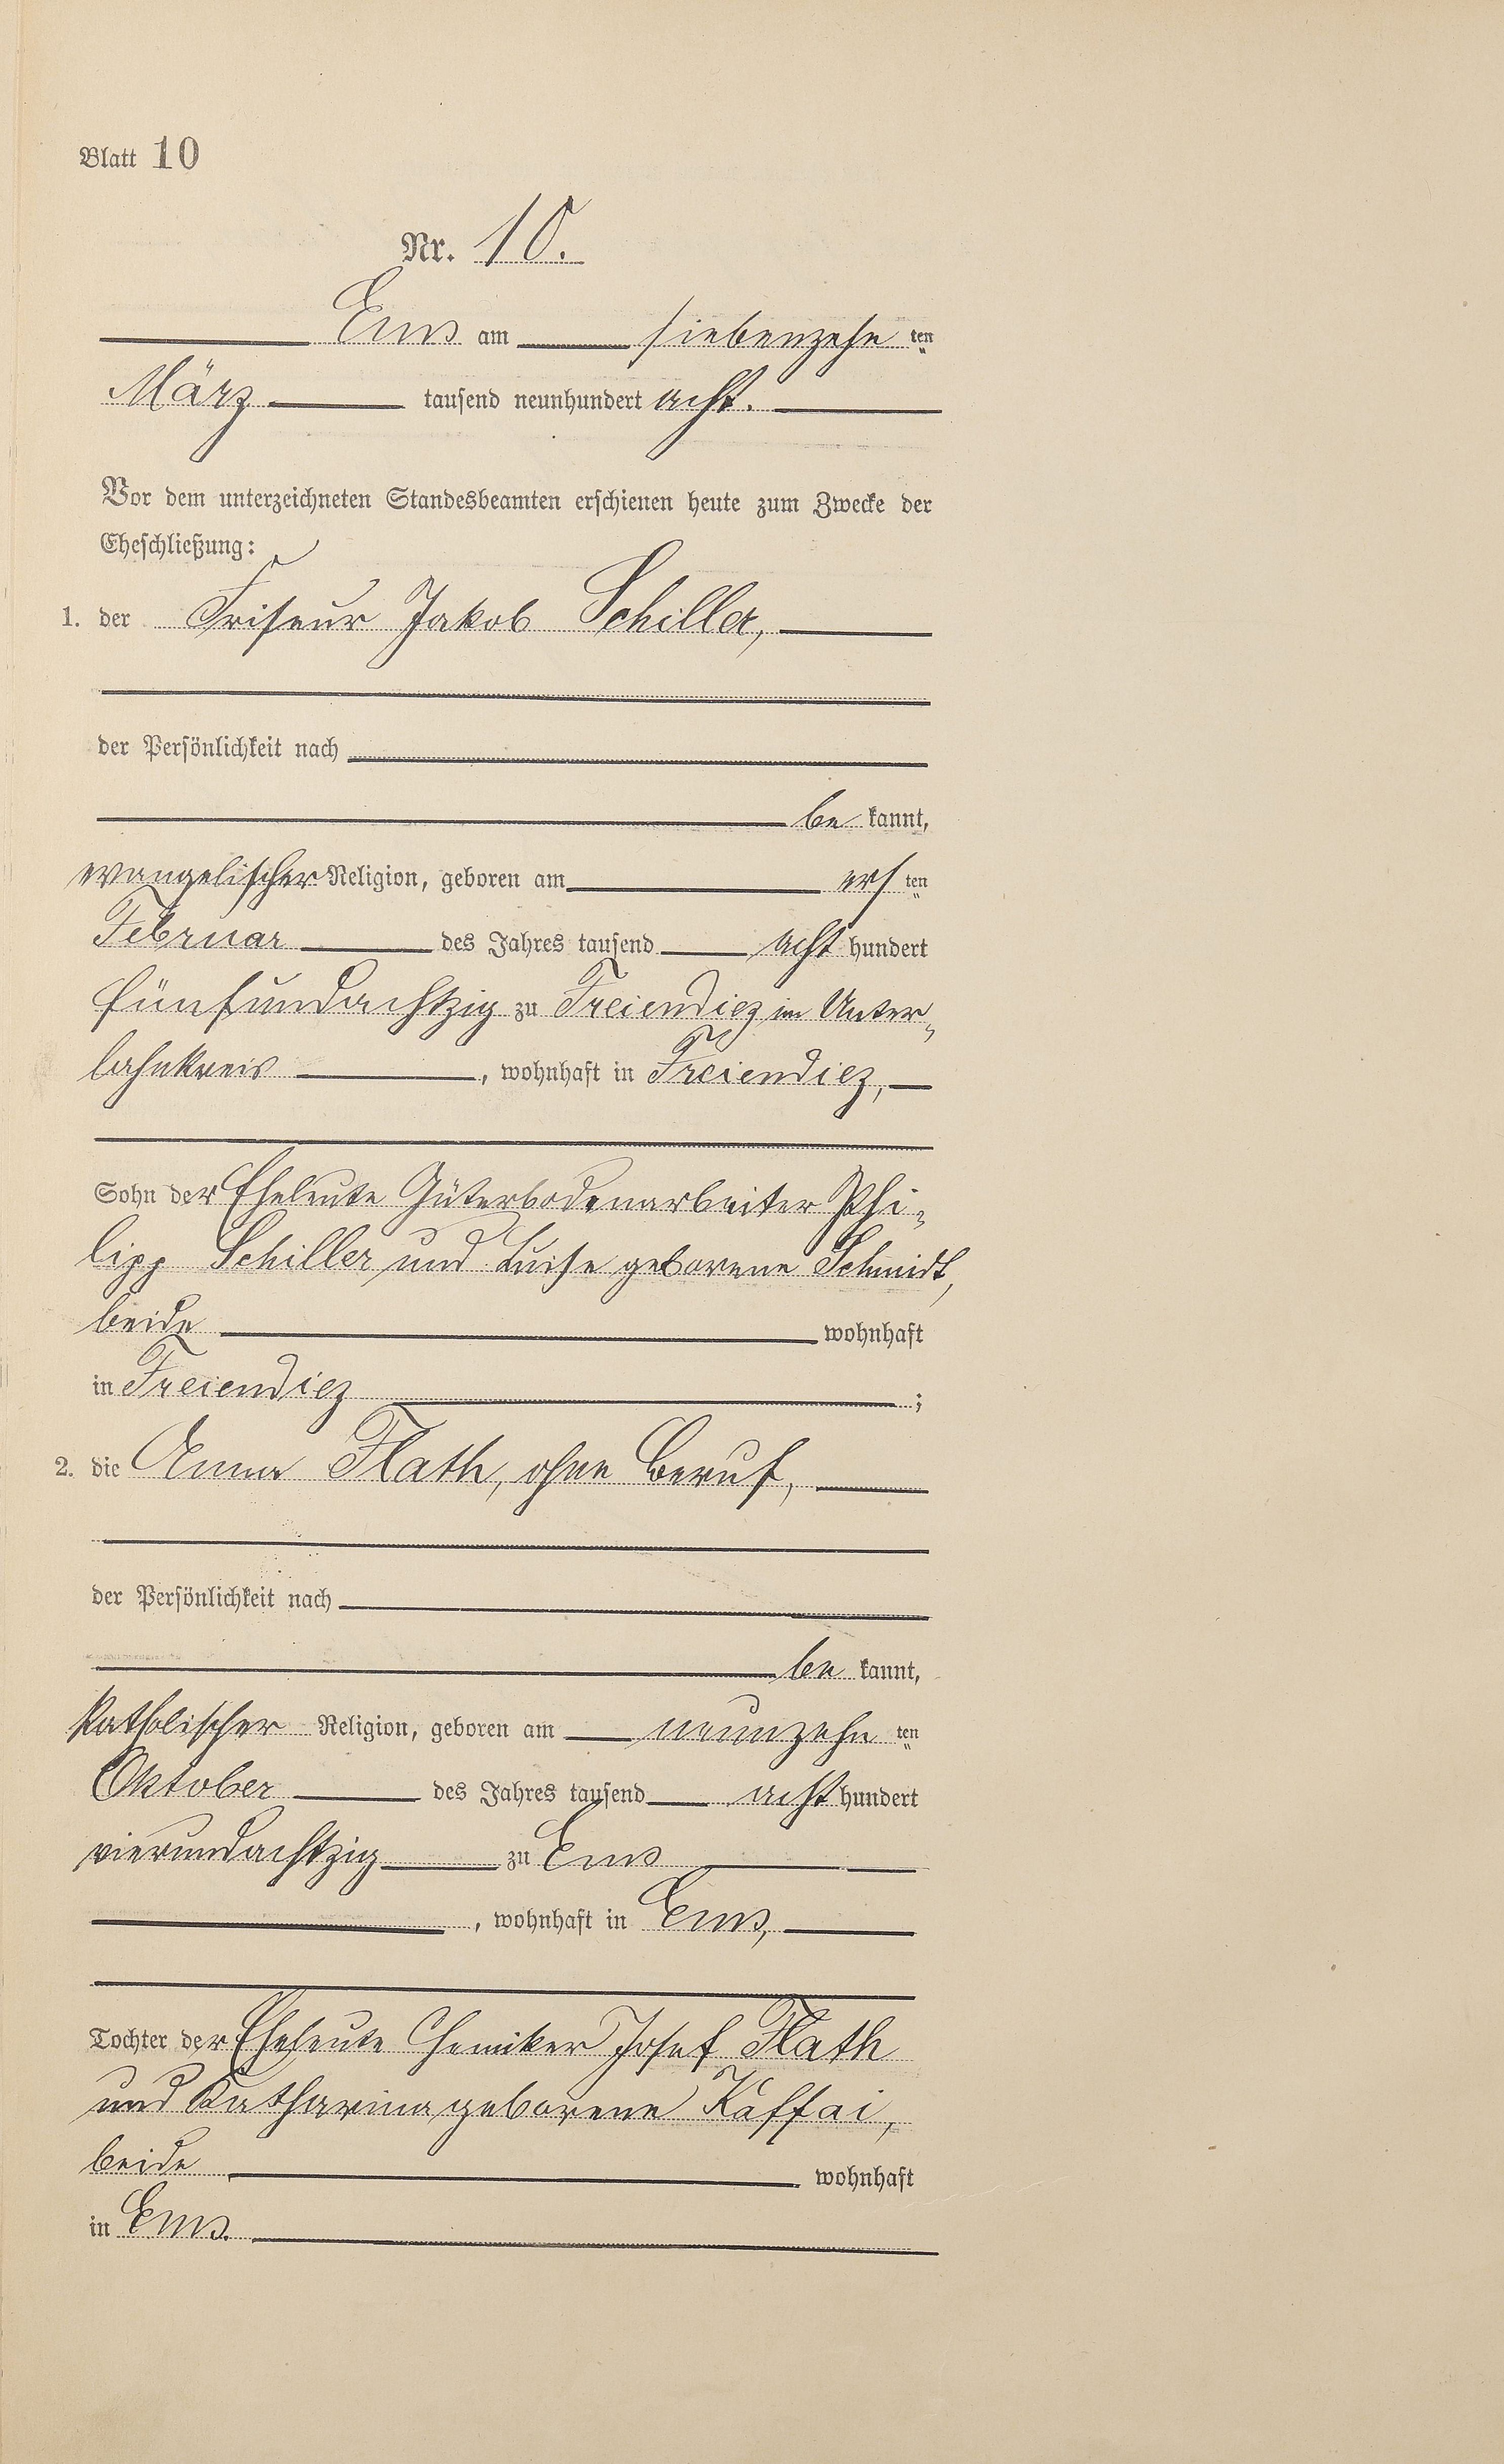 Blatt 10
Nr. 10.
Ems am siebenzehn ten
März tausend neunhundert acht.
Vor dem unterzeichneten Standesbeamten erschienen heute zum Zwecke der
Eheschließung:
1. der Friseur Jakob Schiller,
der Persönlichkeit nach
be kannt,
evangelischer Religion, geboren am ers ten
Februar des Jahres tausend acht hundert
fünfundachtzig zu Freiendiez im Unter-
lahnkreis , wohnhaft in Freiendiez,
Sohn der Eheleute Güterbodenarbeiter Phi-
lipp Schiller und Luise geborene Schmidt,
beide wohnhaft
in Freiendiez ;
2. die Anna Flath, ohne Beruf,
der Persönlichkeit nach
be kannt,
katholischer Religion, geboren am neunzehn ten
Oktober des Jahres tausend acht hundert
vierundachtzig zu Ems
, wohnhaft in Ems,
Tochter der Eheleute Chemiker Josef Flath
und Katharina geborene Kaffai,
beide wohnhaft
in Ems.